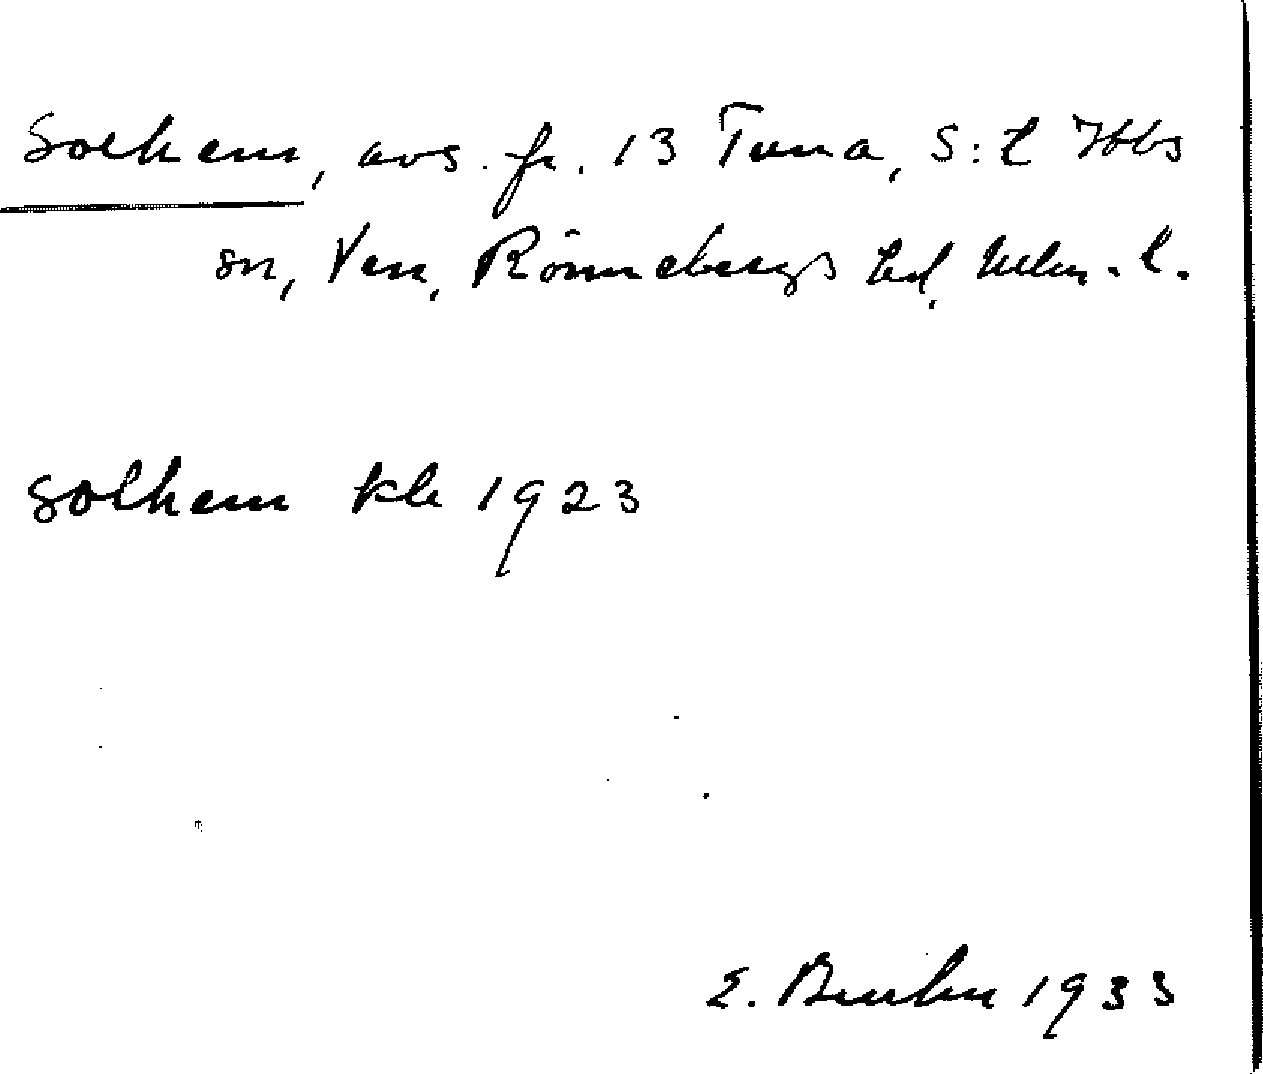 Solhem, avs. fr. 13 Tuna, S:t Ibbs
sn, Ven, Rönnebergs hd, Malm. l.
Solhem kb 1923
E. 1933